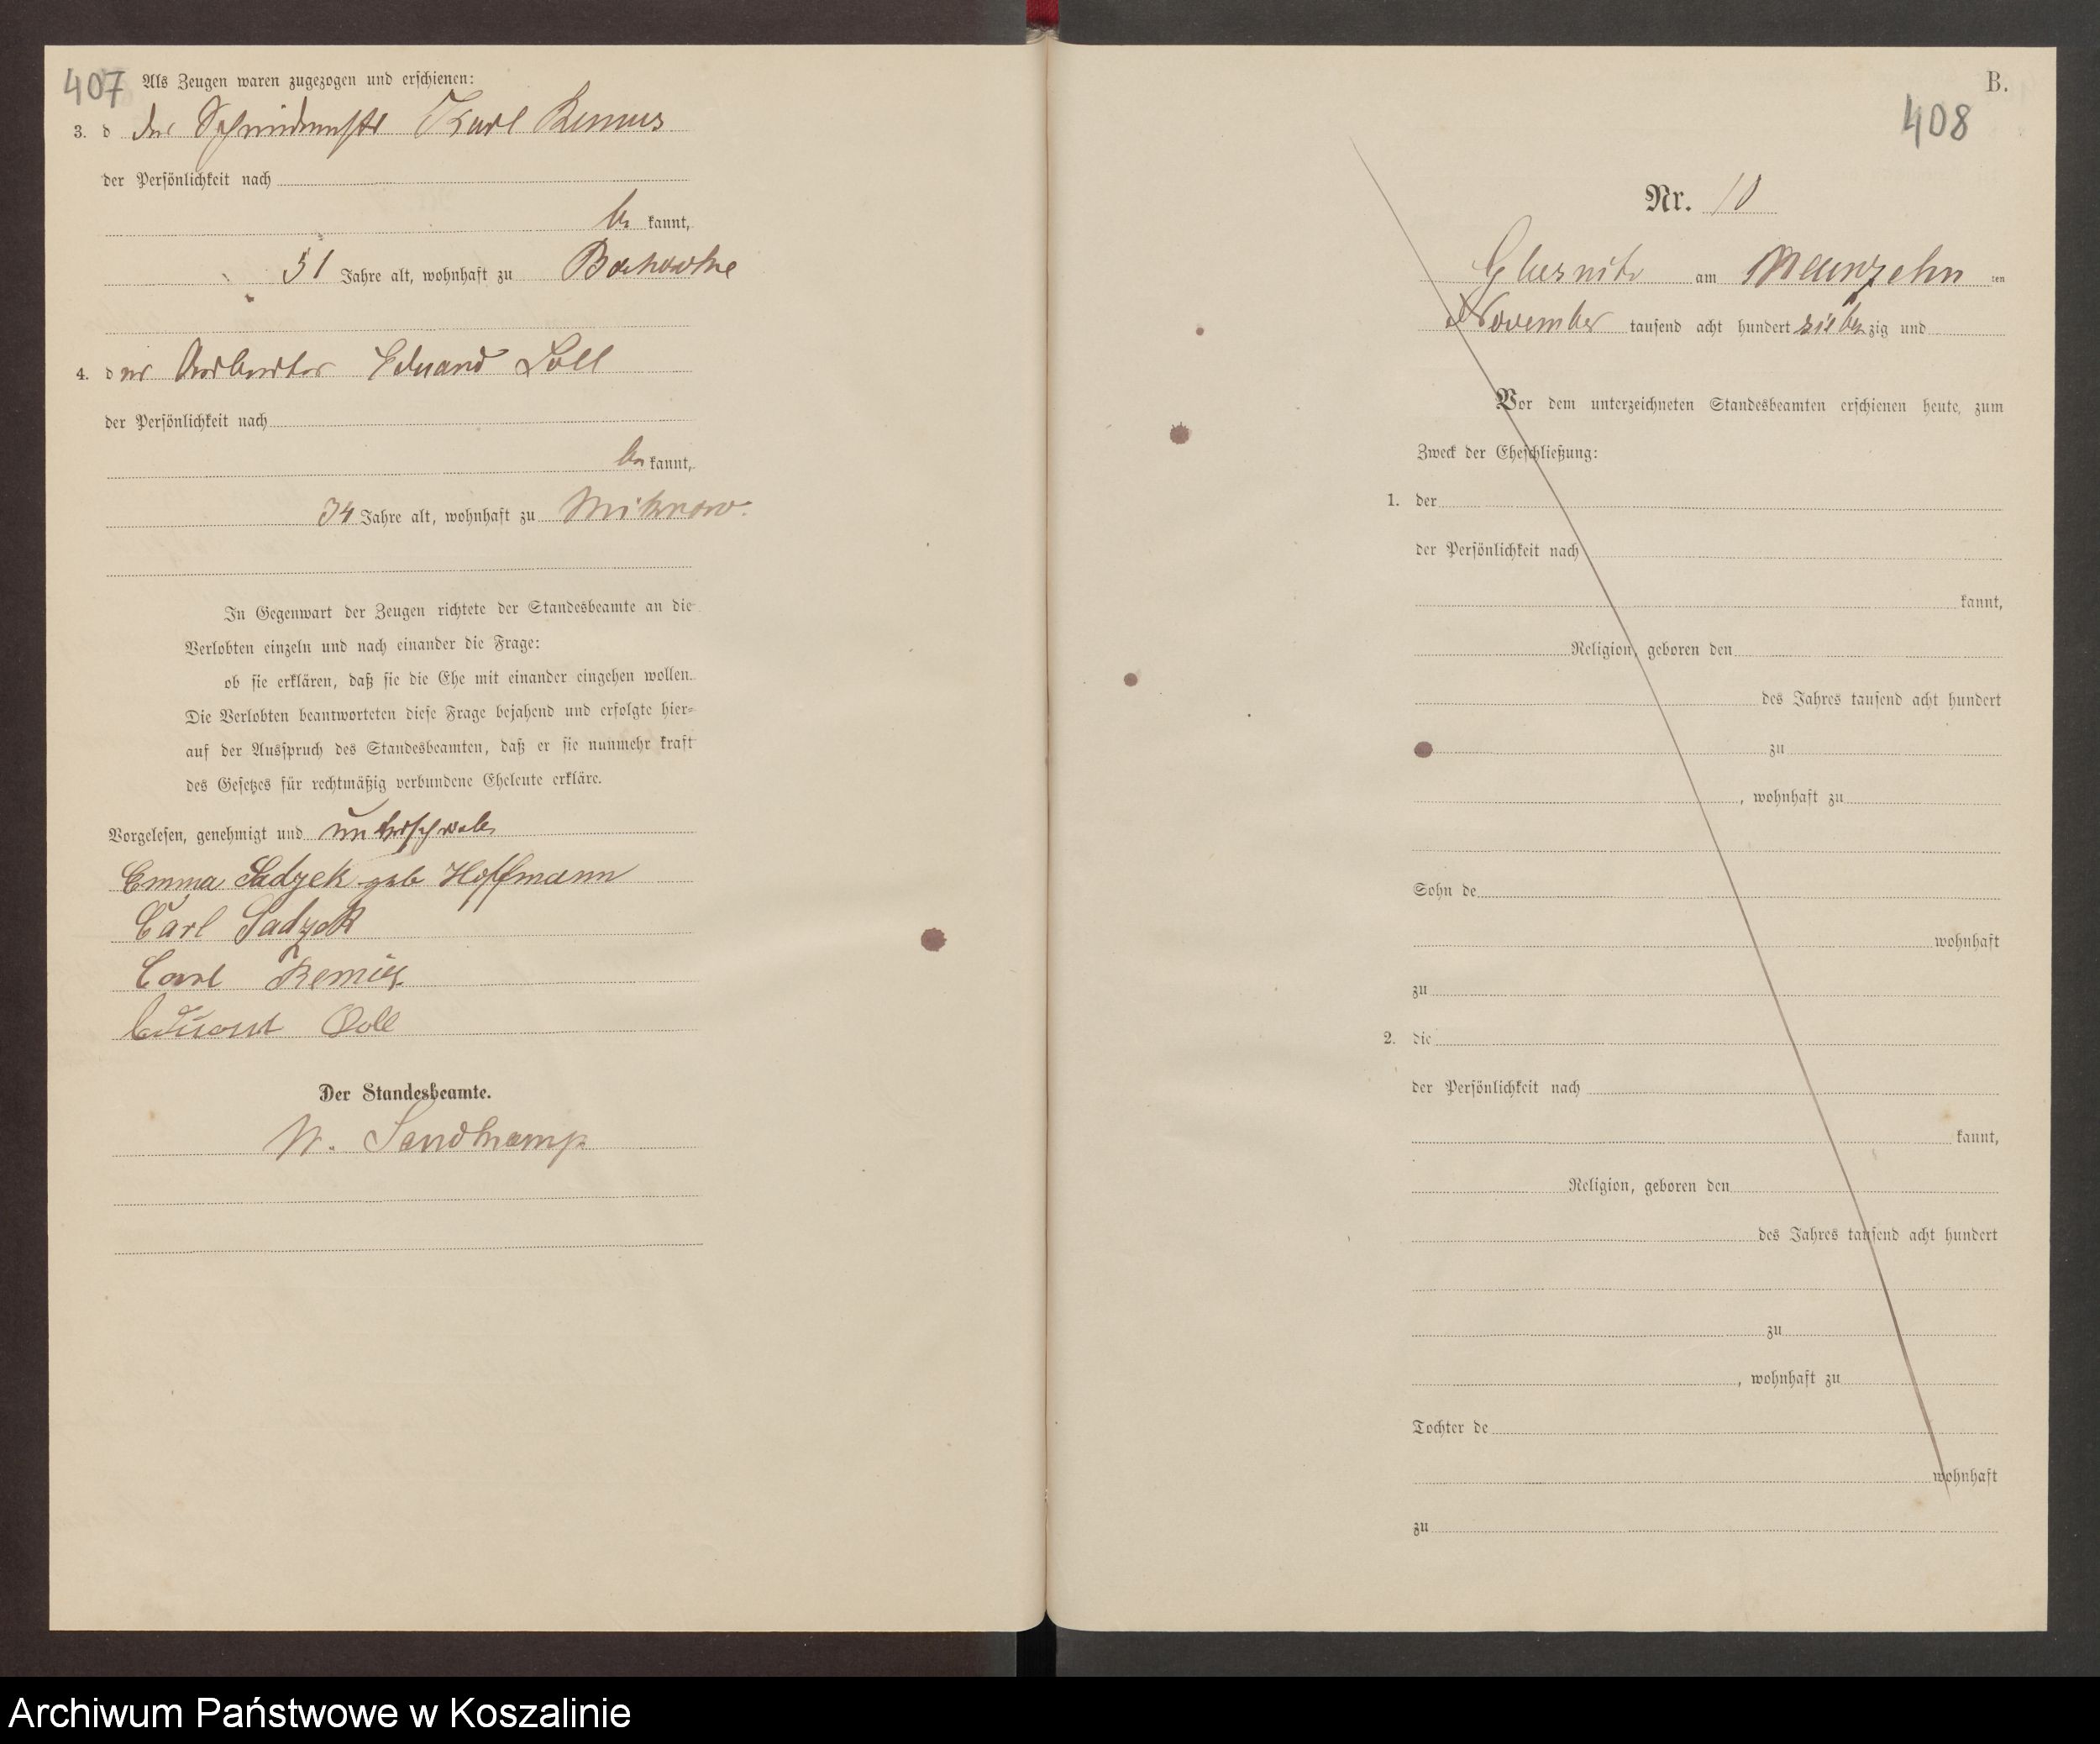 407 Als Zeugen waren zugezogen und erschienen:
3. d der Schmidemstr Karl Remus
der Persönlichkeit nach
be kannt,
51 Jahre alt, wohnhaft zu Bochowke
4. d er Arbeiter Eduard Loll
der Persönlichkeit nach
be kannt,
34 Jahre alt, wohnhaft zu Mikrow.
In Gegenwart der Zeugen richtete der Standesbeamte an die
Verlobten einzeln und nach einander die Frage:
ob sie erklären, daß sie die Ehe mit einander eingehen wollen.
Die Verlobten beantworteten diese Frage bejahend und erfolgte hier-
auf der Ausspruch des Standesbeamten, daß er sie nunmehr kraft
des Gesetzes für rechtmäßig verbundene Eheleute erkläre.
Vorgelesen, genehmigt und unterschrieben
Emma Sadzek geb Hoffmann
Carl Sadzek
Carl Remus
Eduard
Der Standesbeamte.
W. Sandkamp
B.
408
Nr. 10
am Neunzehn ten
November tausend acht hundert sieben zig und
Vor dem unterzeichneten Standesbeamten erschienen heute, zum
Zweck der Eheschließung:
1. der
der Persönlichkeit nach
kannt,
Religion, geboren den
des Jahres tausend acht hundert
zu
, wohnhaft zu
Sohn de
wohnhaft
zu
2. die
der Persönlichkeit nach
kannt,
Religion, geboren den
des Jahres tausend acht hundert
zu
, wohnhaft zu
Tochter de
wohnhaft
zu
Archiwum Państwowe w Koszalinie